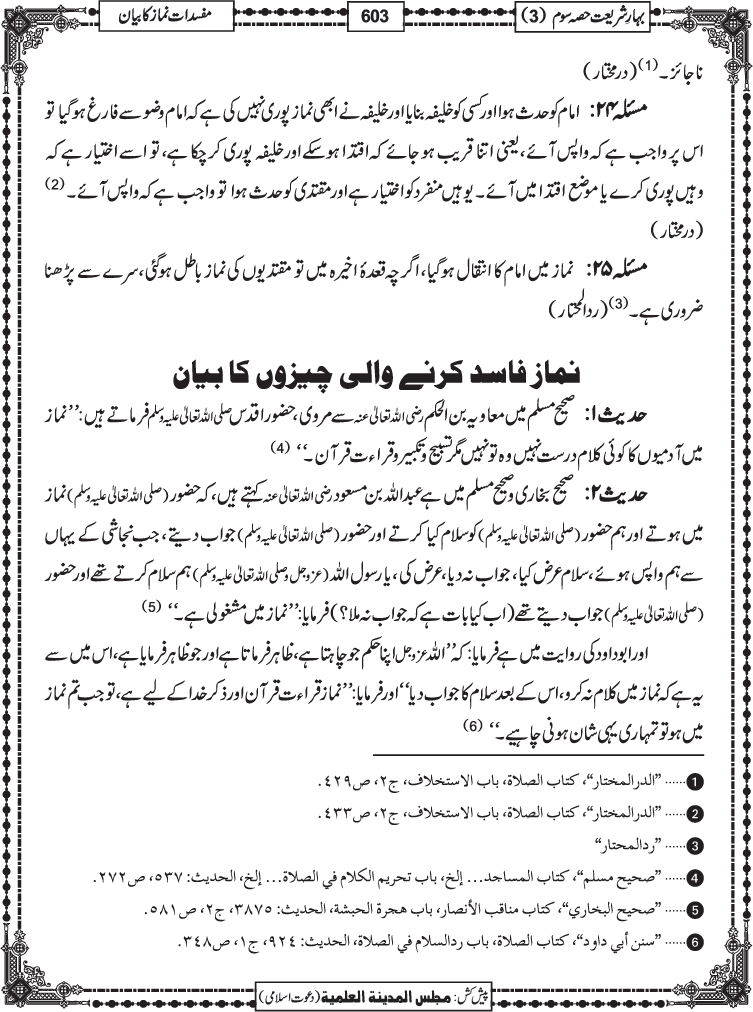 بہارِ شریعت حصہ سوم (3)
603
مفسدات نماز کا بیان
ناجائز۔(1) (درمختار)
مسئلہ ۲۴: امام کو حدث ہوا اور کسی کو خلیفہ بنایا اور خلیفہ نے ابھی نماز پوری نہیں کی ہے کہ امام وضو سے فارغ ہو گیا تو
اس پر واجب ہے کہ واپس آئے، یعنی اتنا قریب ہو جائے کہ اقتدا ہو سکے اور خلیفہ پوری کر چکا ہے، تو اسے اختیار ہے کہ
وہیں پوری کرے یا موضع اقتدا میں آئے۔ یوہیں منفرد کو اختیار ہے اور مقتدی کو حدث ہوا تو واجب ہے کہ واپس آئے۔(2)
(درمختار)
مسئلہ ۲۵: نماز میں امام کا انتقال ہو گیا، اگرچہ قعدۂ اخیرہ میں تو مقتدیوں کی نماز باطل ہو گئی، سرے سے پڑھنا
ضروری ہے۔(3) (ردالمحتار)
نماز فاسد کرنے والی چیزوں کا بیان
حدیث ۱: صحیح مسلم میں معاویہ بن الحکم رضی اللہ تعالیٰ عنہ سے مروی، حضور اقدس صلی اللہ تعالیٰ علیہ وسلم فرماتے ہیں: ’’نماز
میں آدمیوں کا کوئی کلام درست نہیں وہ تو نہیں مگر تسبیح و تکبیر و قراءت قرآن۔‘‘ (4)
حدیث ۲: صحیح بخاری و صحیح مسلم میں ہے عبداللہ بن مسعود رضی اللہ تعالیٰ عنہ کہتے ہیں، کہ حضور (صلی اللہ تعالیٰ علیہ وسلم) نماز
میں ہوتے اور ہم حضور (صلی اللہ تعالیٰ علیہ وسلم) کو سلام کیا کرتے اور حضور (صلی اللہ تعالیٰ علیہ وسلم) جواب دیتے، جب نجاشی کے یہاں
سے ہم واپس ہوئے، سلام عرض کیا، جواب نہ دیا، عرض کی، یا رسول اللہ (عزوجل و صلی اللہ تعالیٰ علیہ وسلم) ہم سلام کرتے تھے اور حضور
(صلی اللہ تعالیٰ علیہ وسلم) جواب دیتے تھے (اب کیا بات ہے کہ جواب نہ ملا؟) فرمایا: ’’نماز میں مشغولی ہے۔‘‘ (5)
اور ابو داود کی روایت میں ہے فرمایا: کہ ’’اللہ عزوجل اپنا حکم جو چاہتا ہے، ظاہر فرماتا ہے اور جو ظاہر فرمایا ہے، اس میں سے
یہ ہے کہ نماز میں کلام نہ کرو، اس کے بعد سلام کا جواب دیا‘‘ اور فرمایا: ’’نماز قراءت قرآن اور ذکر خدا کے لیے ہے، تو جب تم نماز
میں ہو تو تمہاری یہی شان ہونی چاہیے۔‘‘ (6)
1 ...... ”الدرالمختار“، کتاب الصلاة، باب الاستخلاف، ج۲، ص۴۲۹.
2 ...... ”الدرالمختار“، کتاب الصلاة، باب الاستخلاف، ج۲، ص۴۳۳.
3 ...... ”ردالمحتار“
4 ...... ”صحیح مسلم“، کتاب المساجد... إلخ، باب تحریم الکلام في الصلاة... إلخ، الحدیث: ۵۳۷، ص۲۷۲.
5 ...... ”صحیح البخاري“، کتاب مناقب الأنصار، باب ھجرة الحبشة، الحدیث: ۳۸۷۵، ج۲، ص۵۸۱.
6 ...... ”سنن أبي داود“، کتاب الصلاة، باب ردالسلام في الصلاة، الحدیث: ۹۲۴، ج۱، ص۳۴۸.
پیش کش: مجلس المدینة العلمیة (دعوت اسلامی)